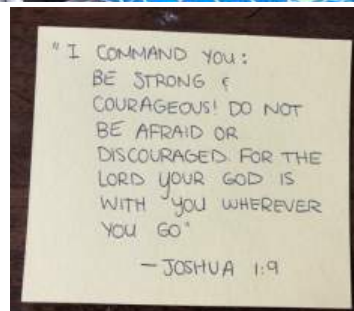 "I COMMAND YOU:
BE STRONG &
COURAGEOUS! DO NOT
BE AFRAID OR
DISCOURAGED. FOR THE
LORD YOUR GOD IS
WITH YOU WHEREVER
YOU GO"
— JOSHUA 1:9